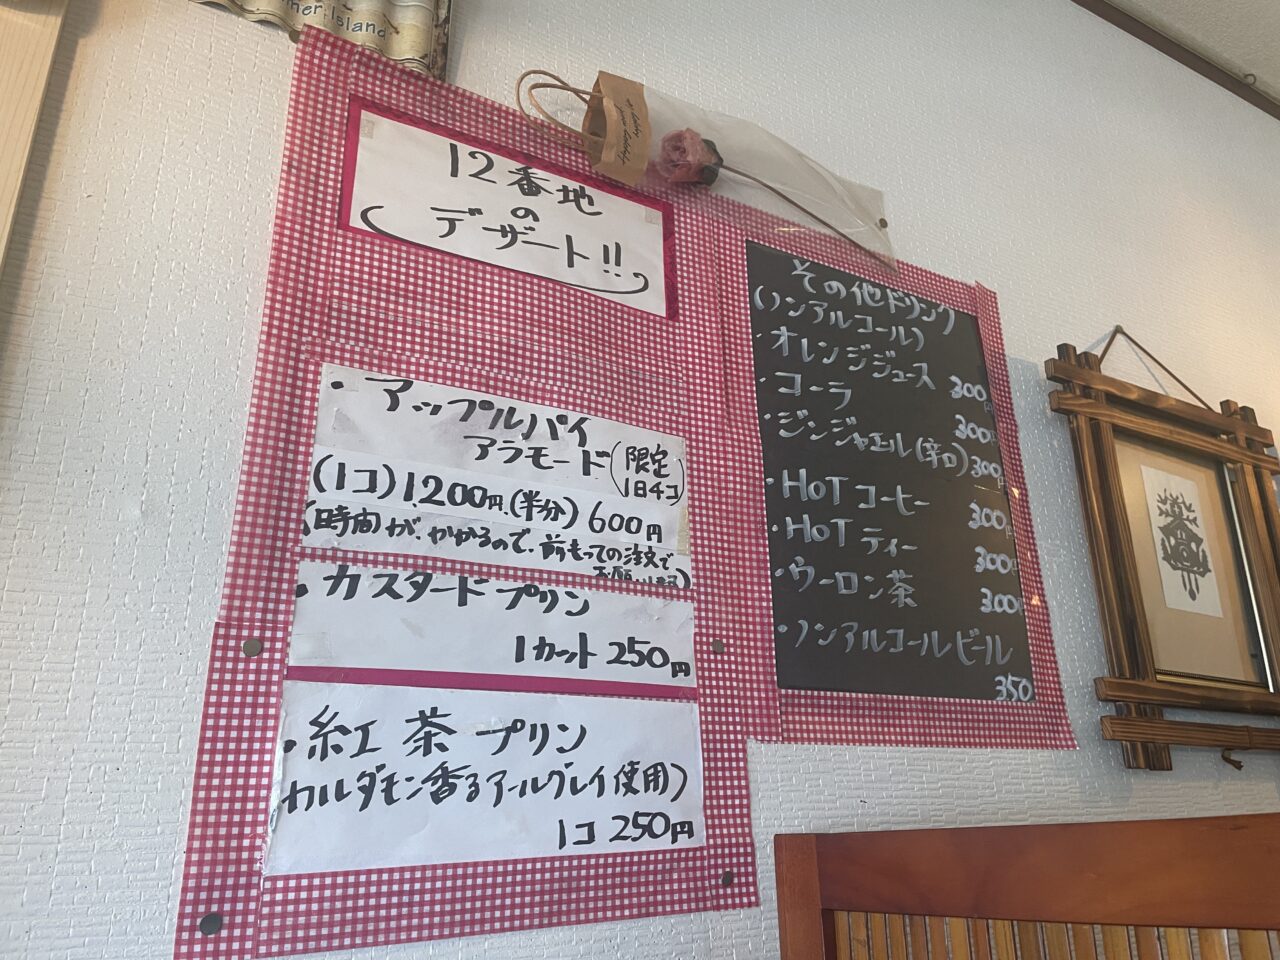 12番地
の
デザート!!
・アップルパイ
アラモード(限定
1日4コ)
(1コ)1,200円.(半分)600円
(時間がかかるので、前もっての注文で
お願いします)
・カスタードプリン
1カット 250円
・紅茶プリン
カルダモン香るアールグレイ使用)
1コ 250円
その他ドリンク
(ノンアルコール)
・オレンジジュース 300円
・コーラ 300円
・ジンジャエール(辛口) 300円
・HOTコーヒー 300円
・HOTティー 300円
・ウーロン茶 300円
・ノンアルコールビール
350
Island